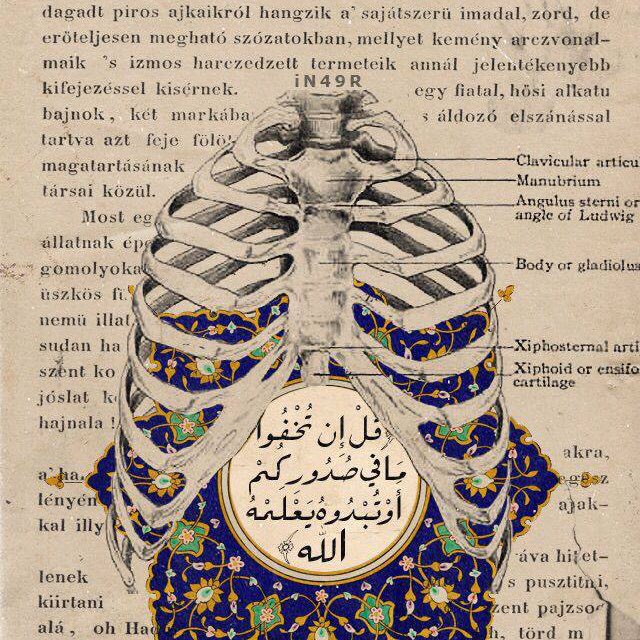 dagadt piros ajkaikról hangzik a' sajátszerü imadal, zord, de
erőteljesen megható szózatokban, mellyet kemény arczvonal-
maik 's izmos harczedzett termeteik annál jelentékenyebb
iN49R
kifejezéssel kisérnek. egy fiatal, hősi alkatu
bajnok, két markába s áldozó elszánással
tartva azt feje fölö
magatartásának
társai közül.
Most eg
állatnak épe
gomolyoka
üszkös fü
nemü illat
sudan ha
szent ko
jóslat k
hajnala !
a' ha
lényen
kal illy
lenek
kiirtani
alá, oh Had
Clavicular articu
Manubrium
Angulus sterni or
angle of Ludwig
Body or gladiolus
Xiphosternal arti
Xiphoid or ensifo
cartilage
قُلْ إِن تُخْفُوا
مَا فِي صُدُورِكُمْ
أَوْ تُبْدُوهُ يَعْلَمْهُ
اللّٰه
akra,
egész
ajak-
áva hitet-
s pusztitni,
zent pajzso
h, törd m